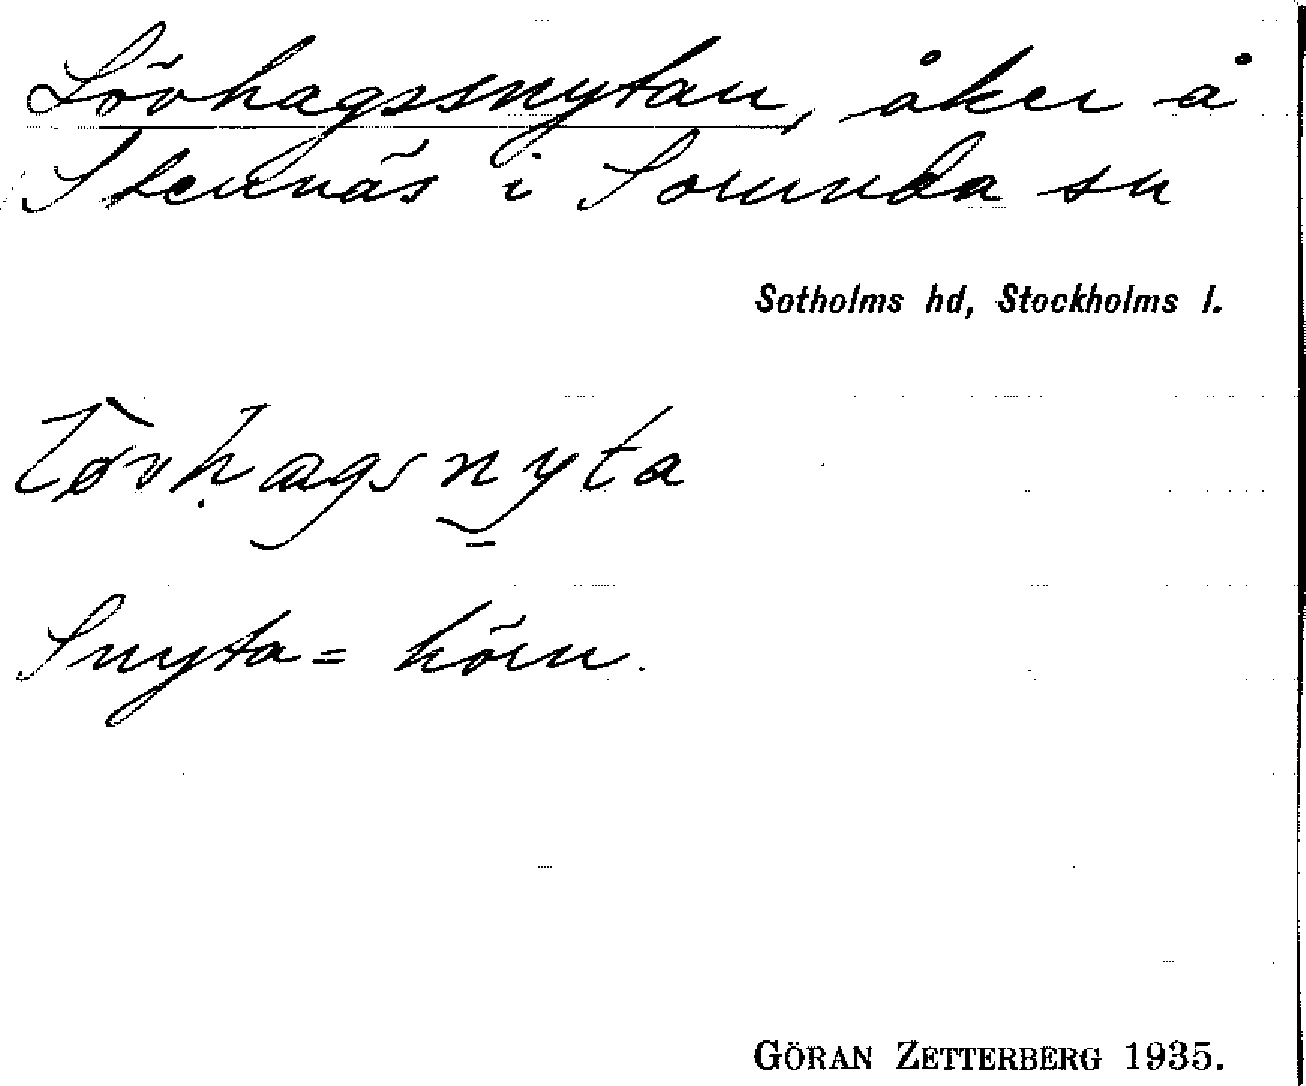 Lövhagssnytan, åker å
Stennäs i Sorunda sn
Sotholms hd, Stockholms l.
Løvhagsnyta
Snyta = hörn.
GÖRAN ZETTERBERG 1935.